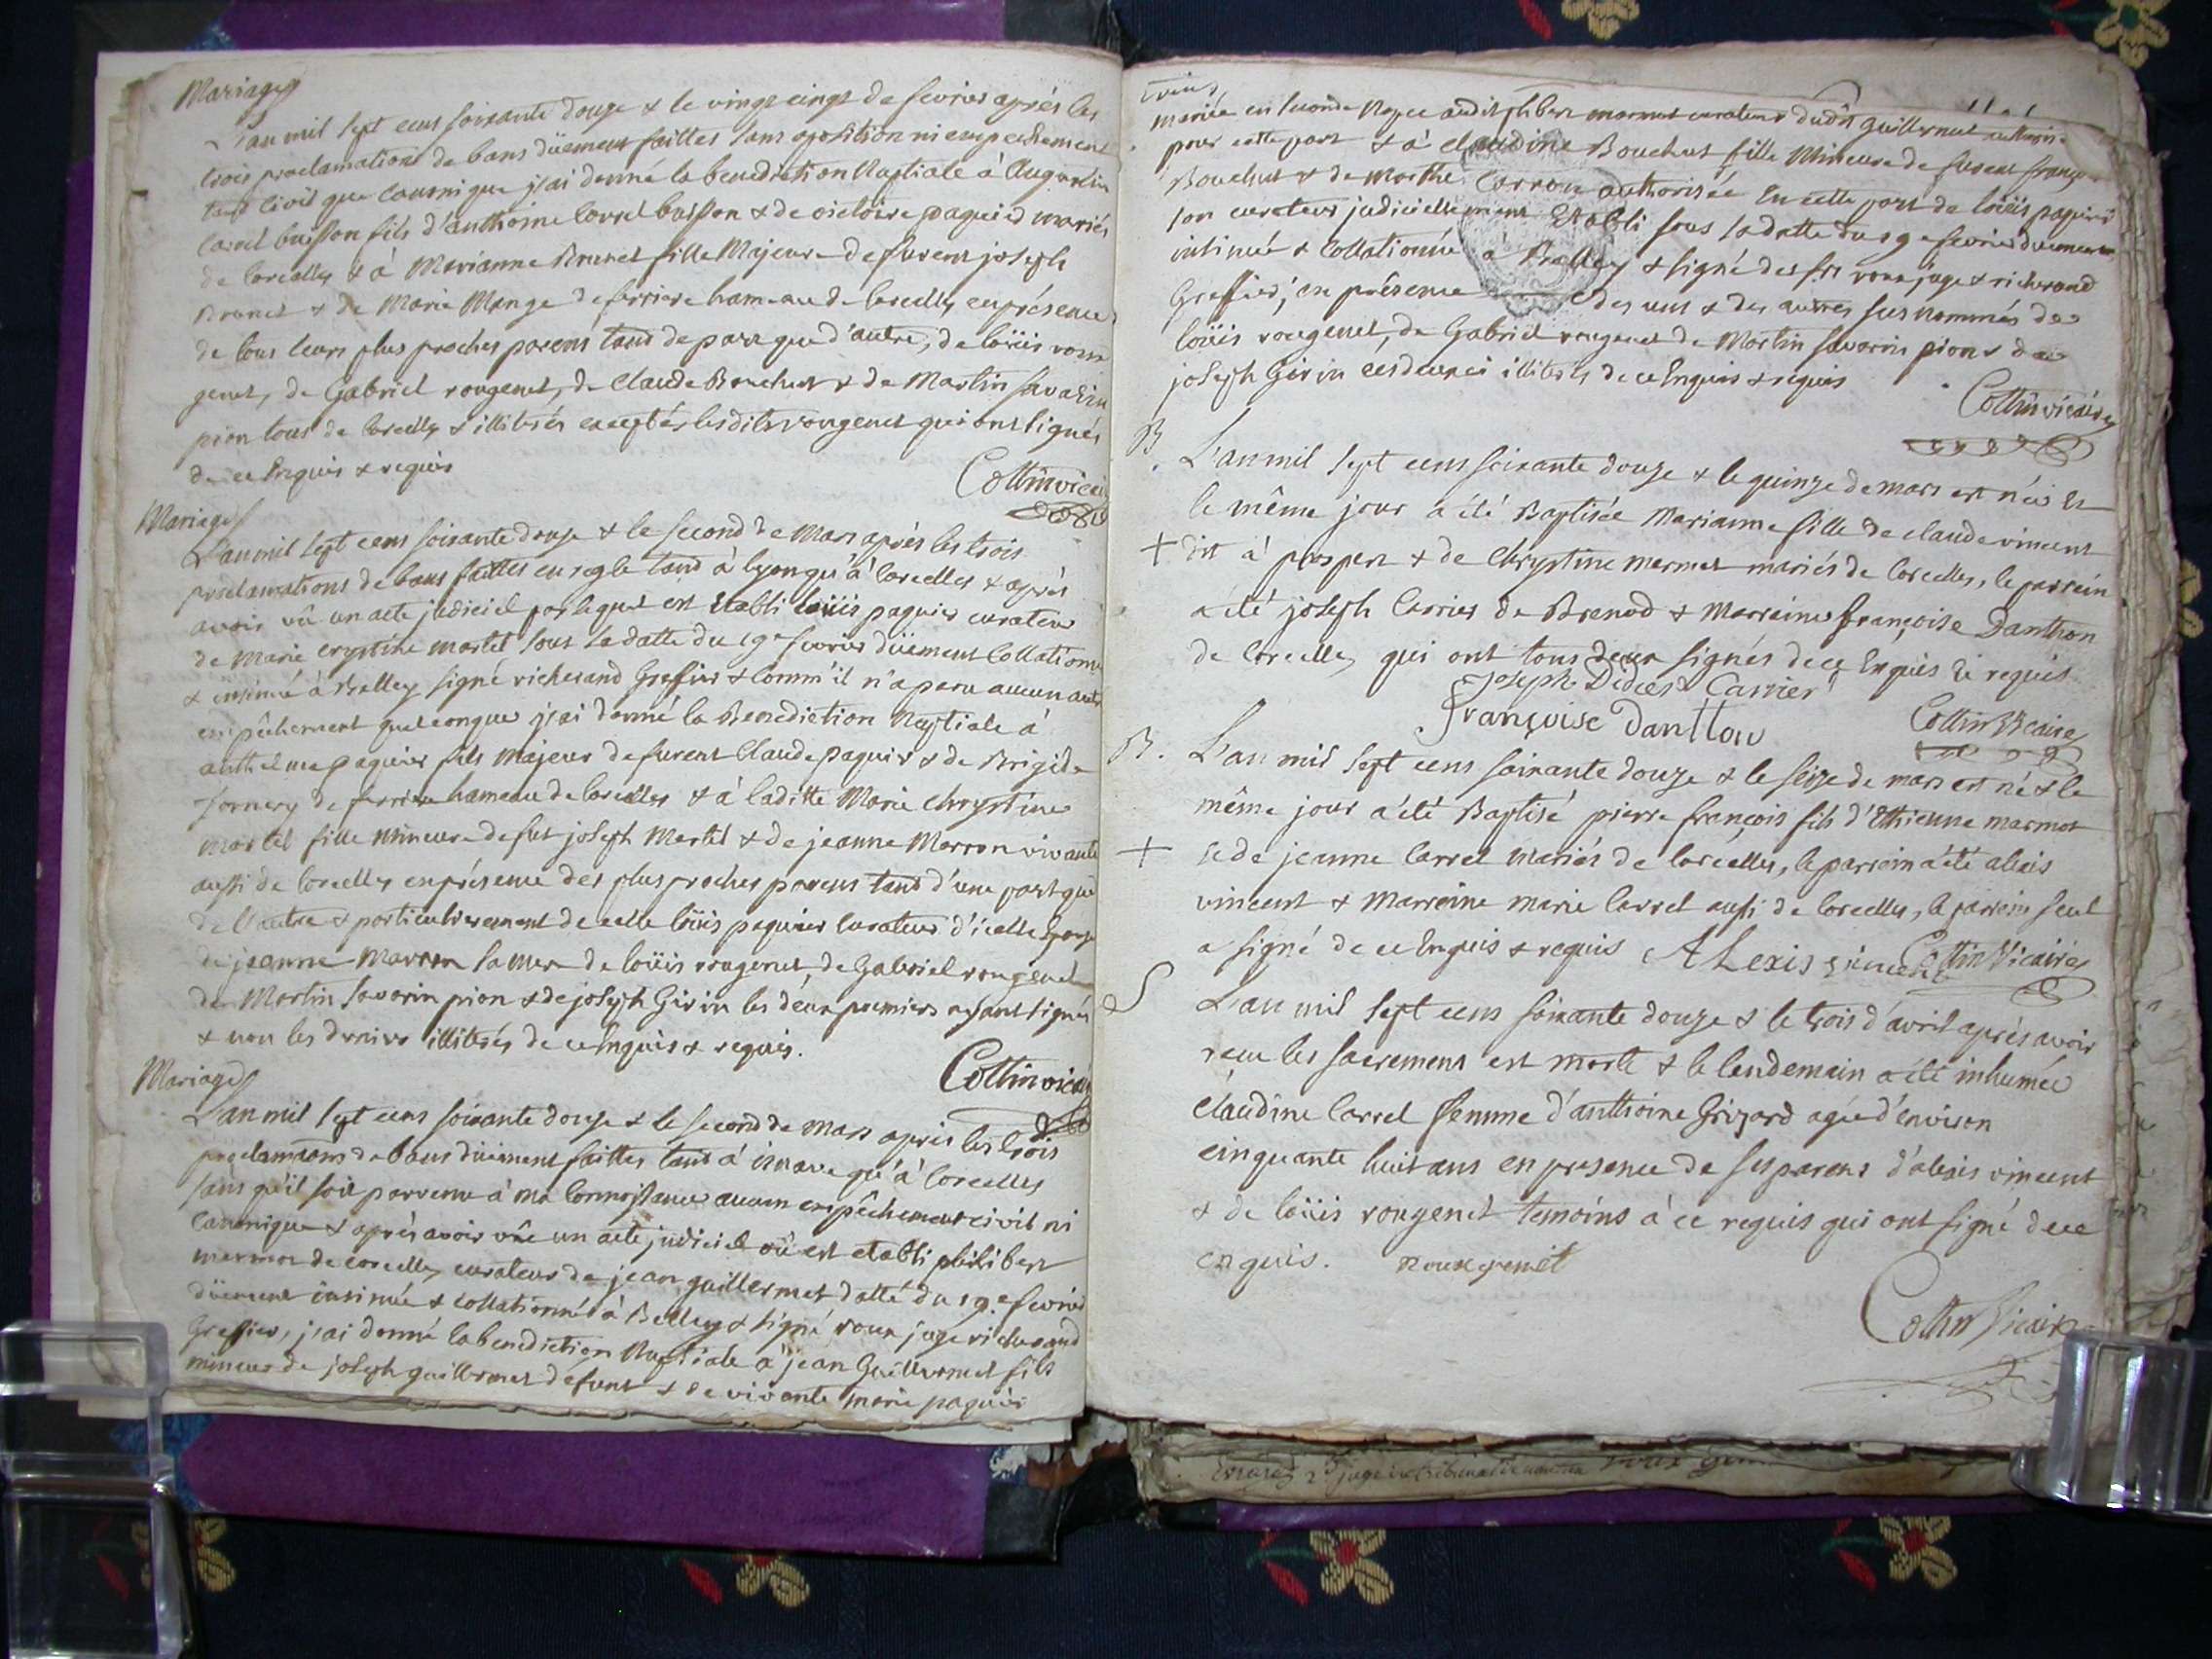 Mariages
L'an mil sept cens soixante douze & le vingt cinqt de fevrier aprés les
trois proclamations de bans düement faittes sans oposition ni empechement
tant civil que canonique j'ai donné la benediction Nuptiale à Augustin
Carrel buisson fils d'anthoine Carrel buisson & de victoire paquier mariés
de Corcelles & à Marianne Brunet fille Majeure de furent joseph
Brunet & de Marie Mange de ferriere hameau de Corcelles en présence
de tous leurs plus proches parens tant de part que d'autre, de loüis rou
genet, de Gabriel rougenet, de Claude Bouchut & de Martin Savarin
pion tous de Corcelles & illitérés exceptés lesdits rougenet qui ont signés
de ce Enquis & requis
Collin vicai
Mariages
L'an mil sept cens soixante douze & le second de Mars aprés les trois
proclamations de bans faittes en regle tant à lyon qu'à Corcelles & aprés
avoir vû un acte judiciel par lequel est établi loüis paquier curateur
de Marie crystine martel sous la datte du 19e fevrier düement Collationné
& insinué à Belley signé richerand Greffier & comm'il n'a paru aucun autre
empêchement quelconque j'ai donné la Benediction Nuptiale à
anthelme paquier fils Majeur de furent Claude paquier & de Brigide
Jornery de ferriere hameau de Corcelles & à laditte Marie Chrystine
Martel fille mineure de fut joseph Martel & de jeanne Marron vivante
aussi de Corcelles en présence des plus proches parens tant d'une part que
de l'autre & particulierement de celle loüis paquier Curateur d'icelle Epouse
de jeanne Marron sa mere de loüis rougenet, de Gabriel rougenet
de Martin Savarin pion & de joseph Girin les deux premiers ayant signés
& non les derniers illitérés de ce Enquis & requis.
Collin vicai
Mariages
L'an mil sept cens soixante douze & le second de mars aprés les trois
proclamations de bans düement faittes tant à que à Corcelles
sans qu'il soit parvenu à ma Connoissance aucun empêchement civil ni
Canonique & aprés avoir vûe un acte judiciel où est etabli philibert
marmet de corcelles curateur de jean guillermet datté du 19e fevrier
düement insinué & collationné à Belley & signé roux juge richerand
Greffier, j'ai donné la benediction Nuptiale à jean Guillermet fils
mineur de joseph guillermet defunt & de vivante marie paquier
mariée en seconde Noçe audit philibert marmet curateur dudit guillermet
pour cette part & à claudine Bouchut fille Mineure de furent françois
Bouchut & de Marthe Carron authorisée En cette part de loüis paquier
son curateur judiciellement Etabli sous la datte du 19e fevrier düement
intimée & Collationnée à Belley & signé des srs roux juge & richerand
Greffier; en présence des uns & des autres susnommés de
loüis rougenet, de Gabriel rougenet de Martin Savarin pion & de
joseph Girin illitérés de ce Enquis & requis
Collin vicaire
B
L'an mil sept cens soixante douze & le quinze de mars est née &
le même jour a été Baptisée Marianne fille de claude vincent
+ dit à prosper & de Chrystine mermet mariés de Corcelles, le parrein
a été joseph Carrier de Brenod & Marreine françoise Danthon
de Corcelles qui ont tous deux signés de ce Enquis & requis
Joseph Carrier
françoise Danthon
Collin Vicaire
B.
L'an mil sept cens soixante douze & le séize de mars est né & le
même jour a été Baptisé pierre françois fils d'Ethienne marmet
+ & de jeanne Carrel mariés de Corcelles, le parrein a été alexis
vincent & Marreine marie Carrel aussi de Corcelles, le parrein seul
a signé de ce Enquis & requis ALexis vincent Collin Vicaire
S
L'an mil sept cens soixante douze & le trois d'avril aprés avoir
reçu les sacremens est morte & le lendemain a été inhumée
claudine Carrel femme d'anthoine Grizard agée d'environ
cinquante huit ans en presence de ses parens d'alexis vincent
& de loüis rougenet temoins à ce requis qui ont signé de ce
enquis. rouxgenet
Collin Vicaire